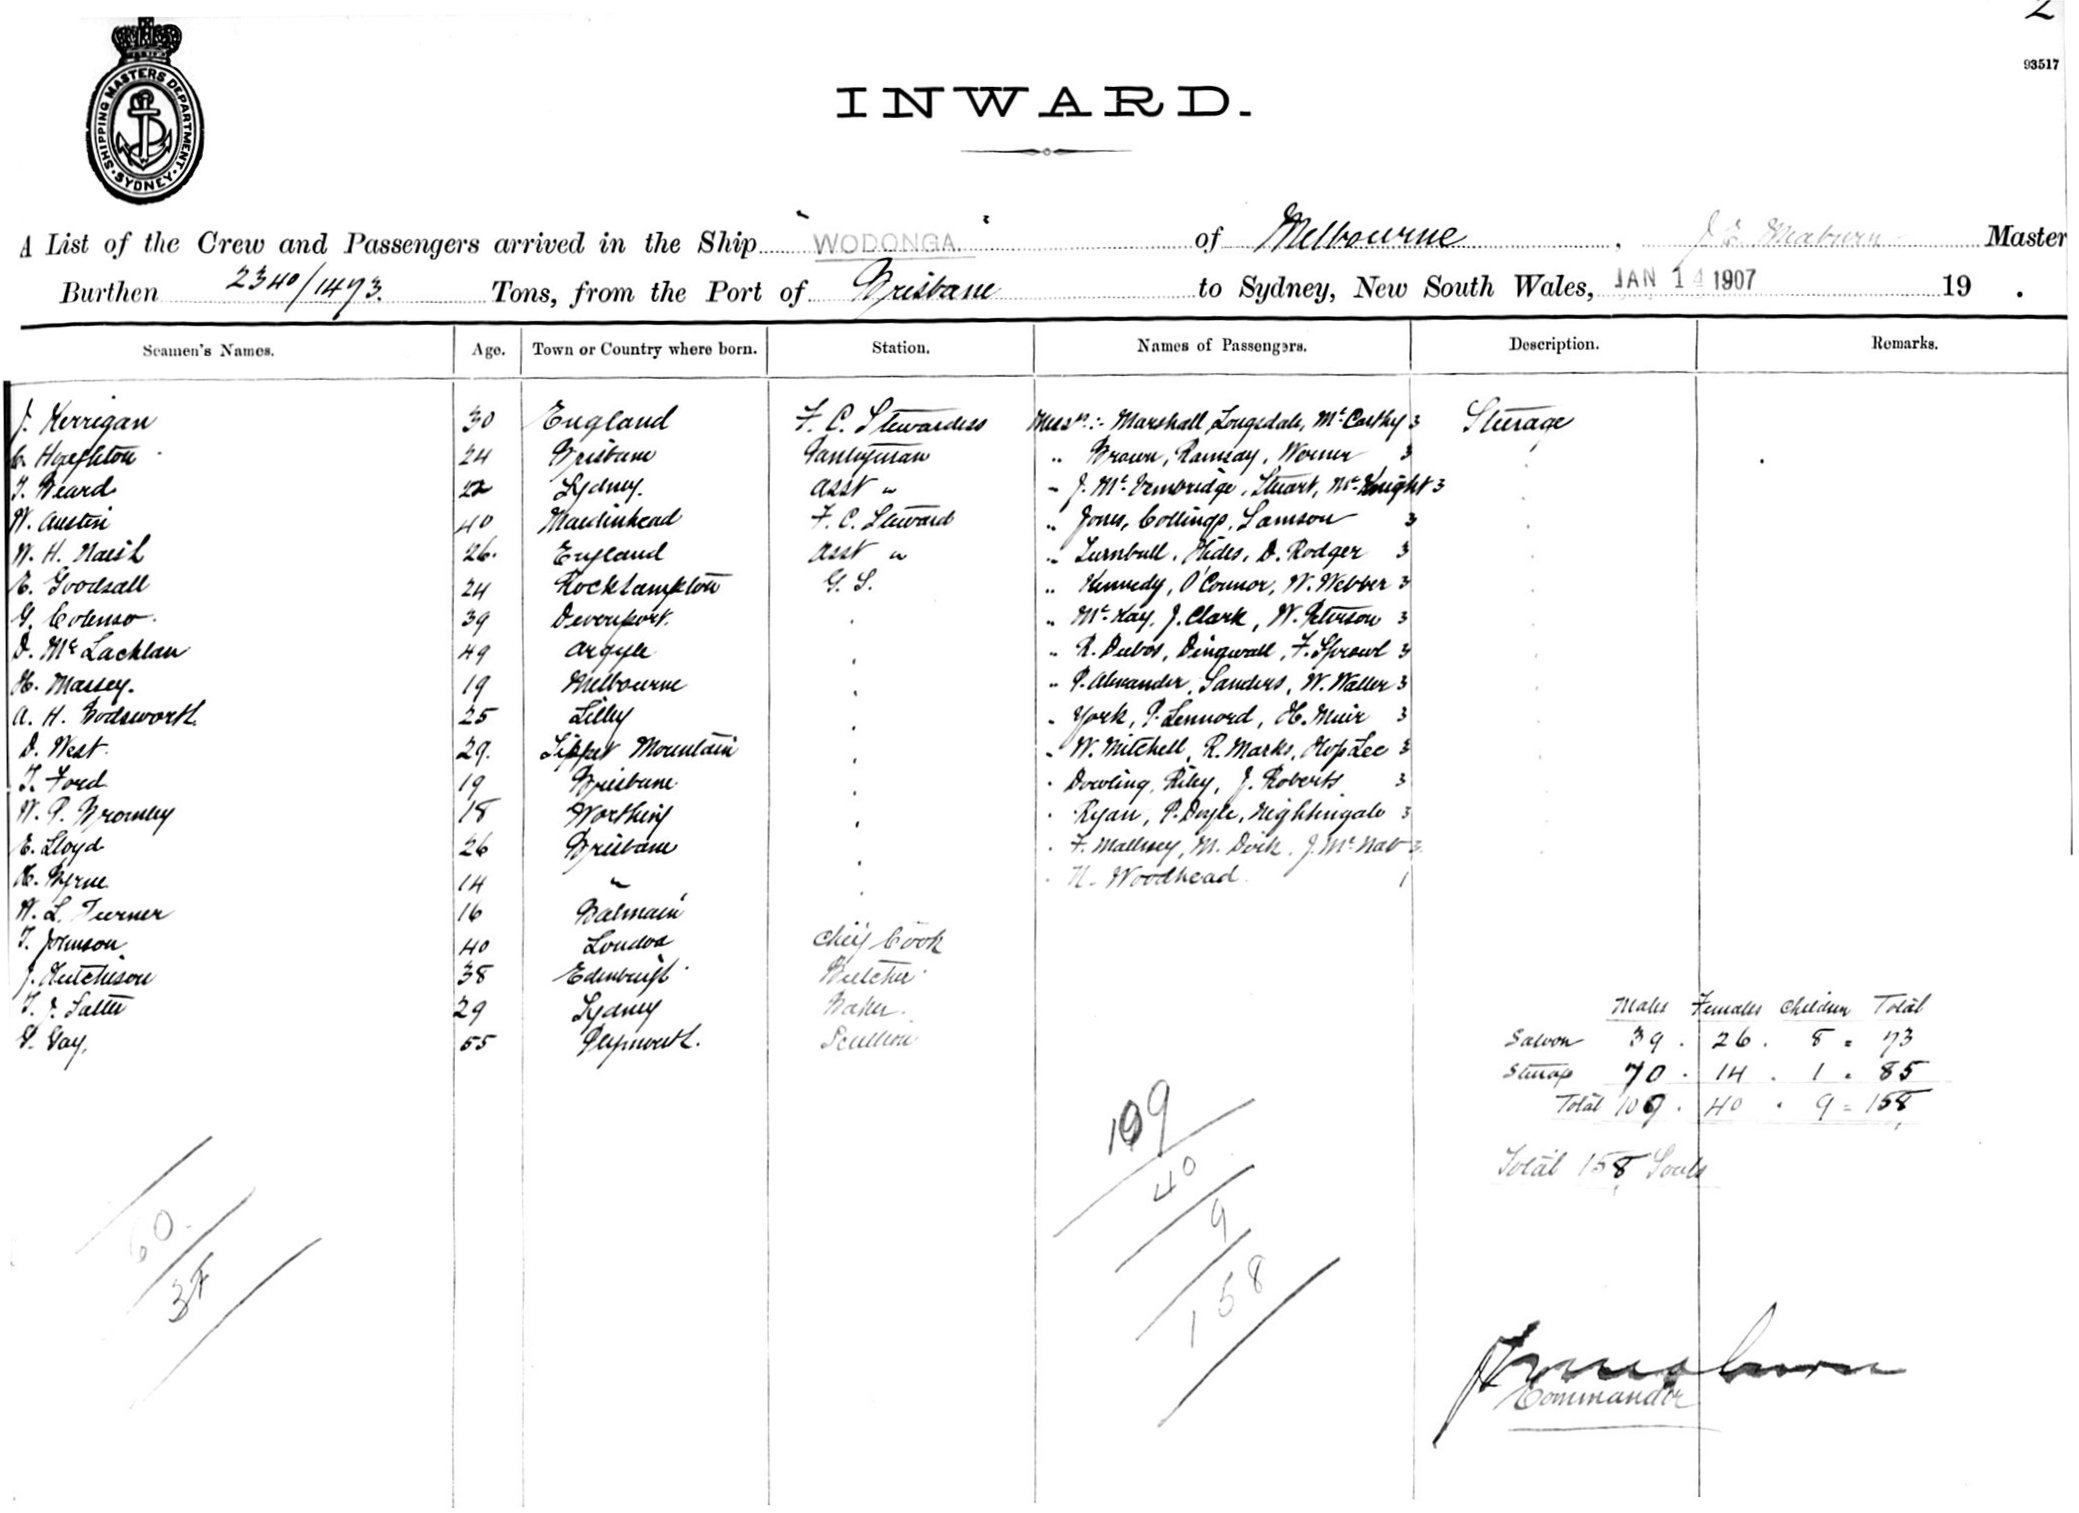 2
93517
SHIPPING MASTERS DEPARTMENT
SYDNEY
INWARD.
A List of the Crew and Passengers arrived in the Ship "WODONGA" of Melbourne, Master
Burthen 2340/1493. Tons, from the Port of Brisbane to Sydney, New South Wales, JAN 14 1907 19 .
Seamen's Names. Age. Town or Country where born. Station. Names of Passengers. Description. Remarks.
J. Kerrigan 30 England F. C. Stewardess Messrs:- Marshall Longsdale, McCarthy 3 Steerage
Houghton 24 Brisbane Pantryman " Brown, Ramsay, Werner 3
T. Beard 22 Sydney. Asst " " J. Stuart, McKnight 3
W. Austin 40 Maidinhead F. C. Steward " Jones, Collings, Samson 3
W. H. Naish 26. England Asst " " Turnbull, Hides, D. Rodger 3
E. Goodsall 24 Rockhampton G. S. " Kennedy, O'Connor, W. Webber 3
G. Colenso 39 Devenport. " McKay, J. Clark, W. Peterson 3
D. McLachlan 49 Argyle " R. Dubos, Dingwall, F. Sprowl 3
H. Massey. 19 Melbourne " P. Alexander, Sanders, W. Waller 3
A. H. Bodsworth 25 Lilley " York, P. Lennord, H. Muir 3
D. West 29. Mountain " W. Mitchell, R. Marks, Hop Lee 3
T. Ford 19 Brisbane " Dowling, Riley, J. Roberts 3
W. P. Bromley 18 Worthing " Ryan, P. Doyle, Nightingale 3
E. Lloyd 26 Brisbane " F. M. Dick, J. McNab 3
H. Byrne 14 " " Woodhead 1
W. L. Turner 16 Balmain
T. Johnson 40 London Chief Cook
J. Hutchison 38 Edinburgh Butcher
29 Sydney Baker
Gay, 55 Plymouth. Scullion
Males Females Children Total
Saloon 39 . 26 . 8 = 73
Steerage 70 . 14 . 1 = 85
Total 109 . 40 . 9 = 158
Total 158 Souls
109
40
9
158
60
Commander